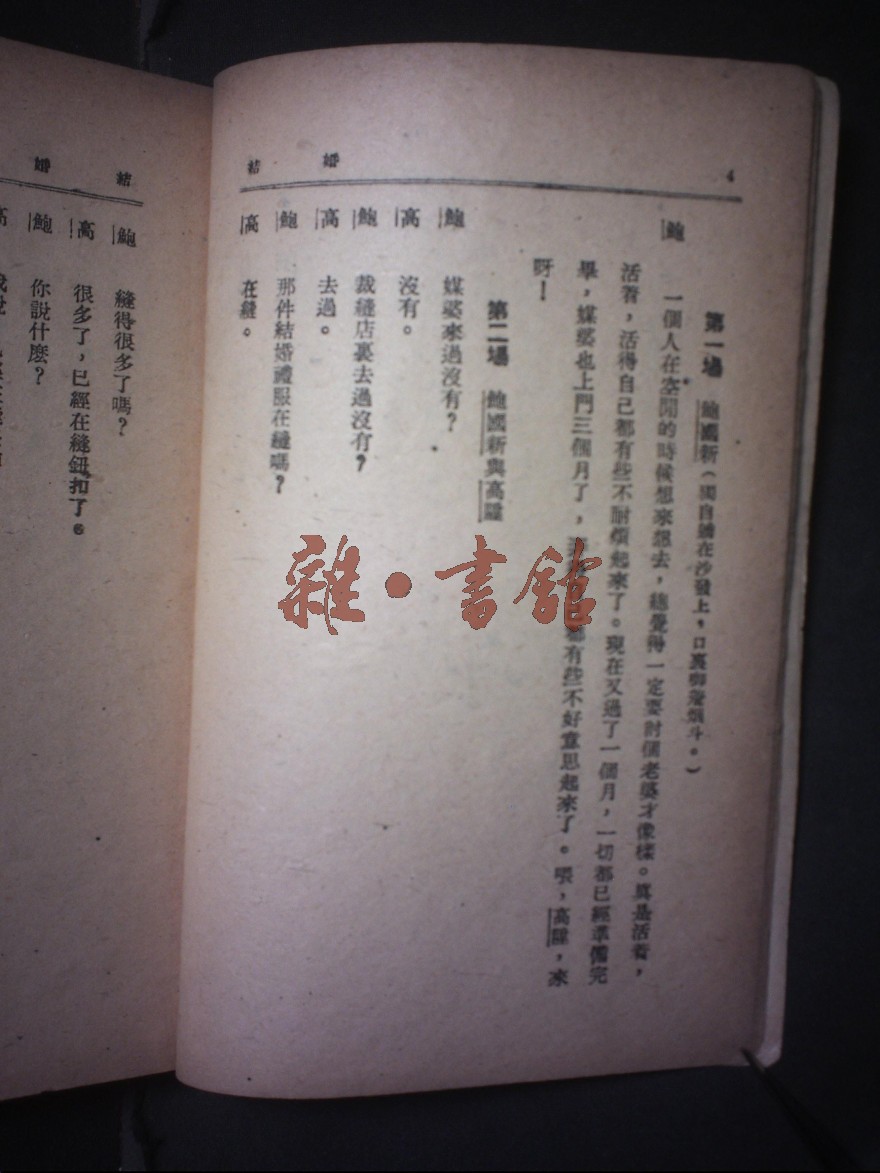 結　　婚
4
第一場　鮑國新(獨自躺在沙發上,口裏啣着烟斗。)
鮑　一個人在空閒的時候想來想去,總覺得一定要討個老婆才像樣。眞是活着,
活着,活得自己都有些不耐煩起來了。現在又過了一個月,一切都已經準備完
畢,媒婆也上門三個月了,都有些不好意思起來了。喂,高陞,來
呀!
第二場　鮑國新與高陞
鮑　媒婆來過沒有?
高　沒有。
鮑　裁縫店裏去過沒有?
高　去過。
鮑　那件結婚禮服在縫嗎?
高　在縫。
結　　婚
鮑　縫得很多了嗎?
高　很多了,已經在縫鈕扣了。
鮑　你說什麽?
高
雜·書館